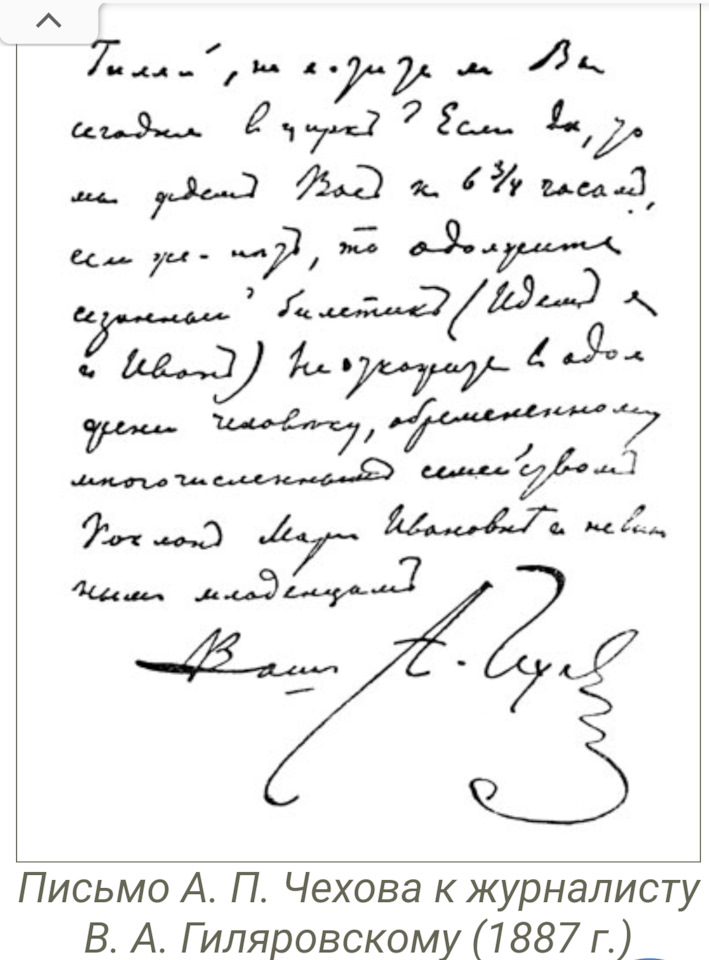 Гиляй, не ли Вы
сегодня в циркъ? Если да, то
мы ждемъ Васъ къ 6 3/4 часамъ,
если же - нѣтъ, то одолжите
сезонный билетикъ (Идемъ я
и Иванъ) Не откажите в одол
жении человѣку, обремененному
многочисленнымъ семействомъ
Поклонъ Марьи Ивановнѣ и невин
нымъ младенцамъ
Ваш А. Чехов
Письмо А. П. Чехова к журналисту
В. А. Гиляровскому (1887 г.)